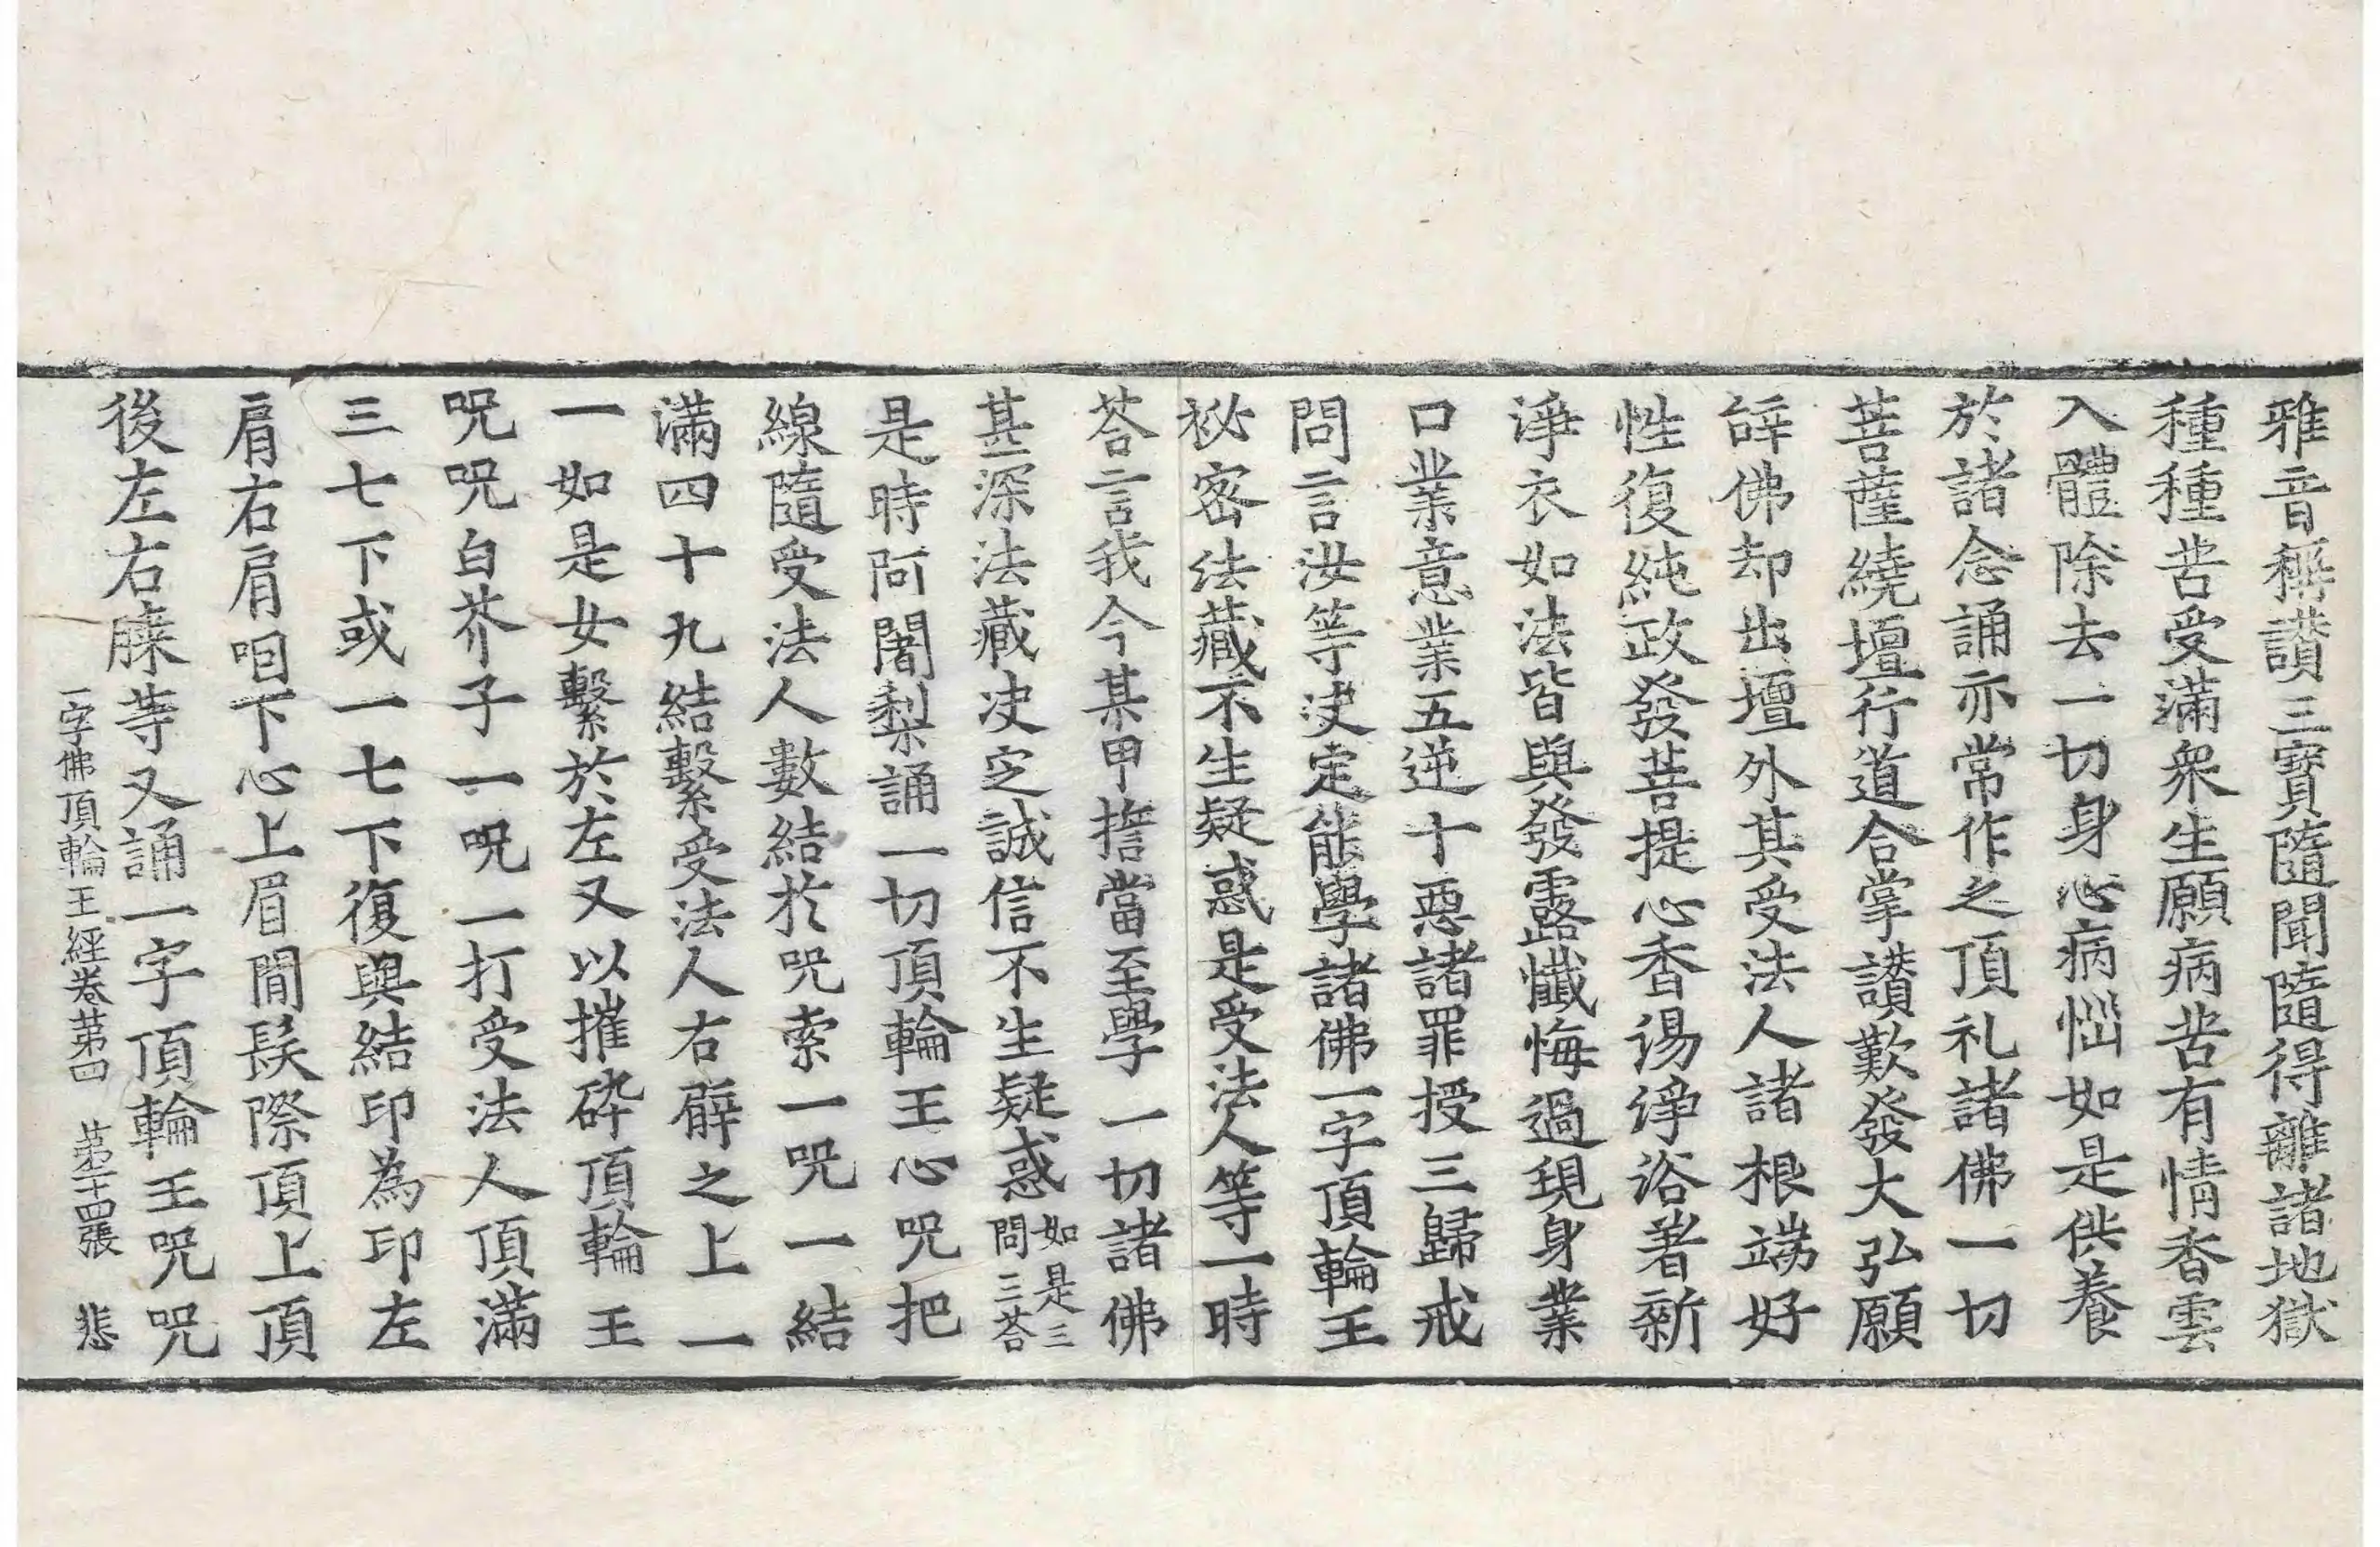 雅音稱讃三寶隨聞隨得離諸地獄
種種苦受滿衆生願病苦有情香雲
入體除去一切身心病惱如是供養
於諸念誦亦常作之頂礼諸佛一切
菩薩繞壇行道合掌讃歎發大弘願
辝佛却出壇外其受法人諸根端好
性復純政發菩提心香湯淨浴著新
淨衣如法皆與發露懺悔過現身業
口業意業五逆十惡諸罪授三歸戒
問言汝等決定能學諸佛一字頂輪王
祕密法藏不生疑惑是受法人等一時
荅言我今某甲擔當至學一切諸佛
甚深法藏決定誠信不生疑惑如是三問三荅
是時阿闍梨誦一切頂輪王心咒把
線隨受法人數結於咒索一咒一結
滿四十九結繫受法人右臂之上一
一如是女繫於左又以摧碎頂輪王
咒咒白芥子一咒一打受法人頂滿
三七下或一七下復與結印為印左
肩右肩咽下心上眉間髮際頂上頂
後左右膝等又誦一字頂輪王咒咒
一字佛頂輪王經卷苐四 苐二十四張 悲